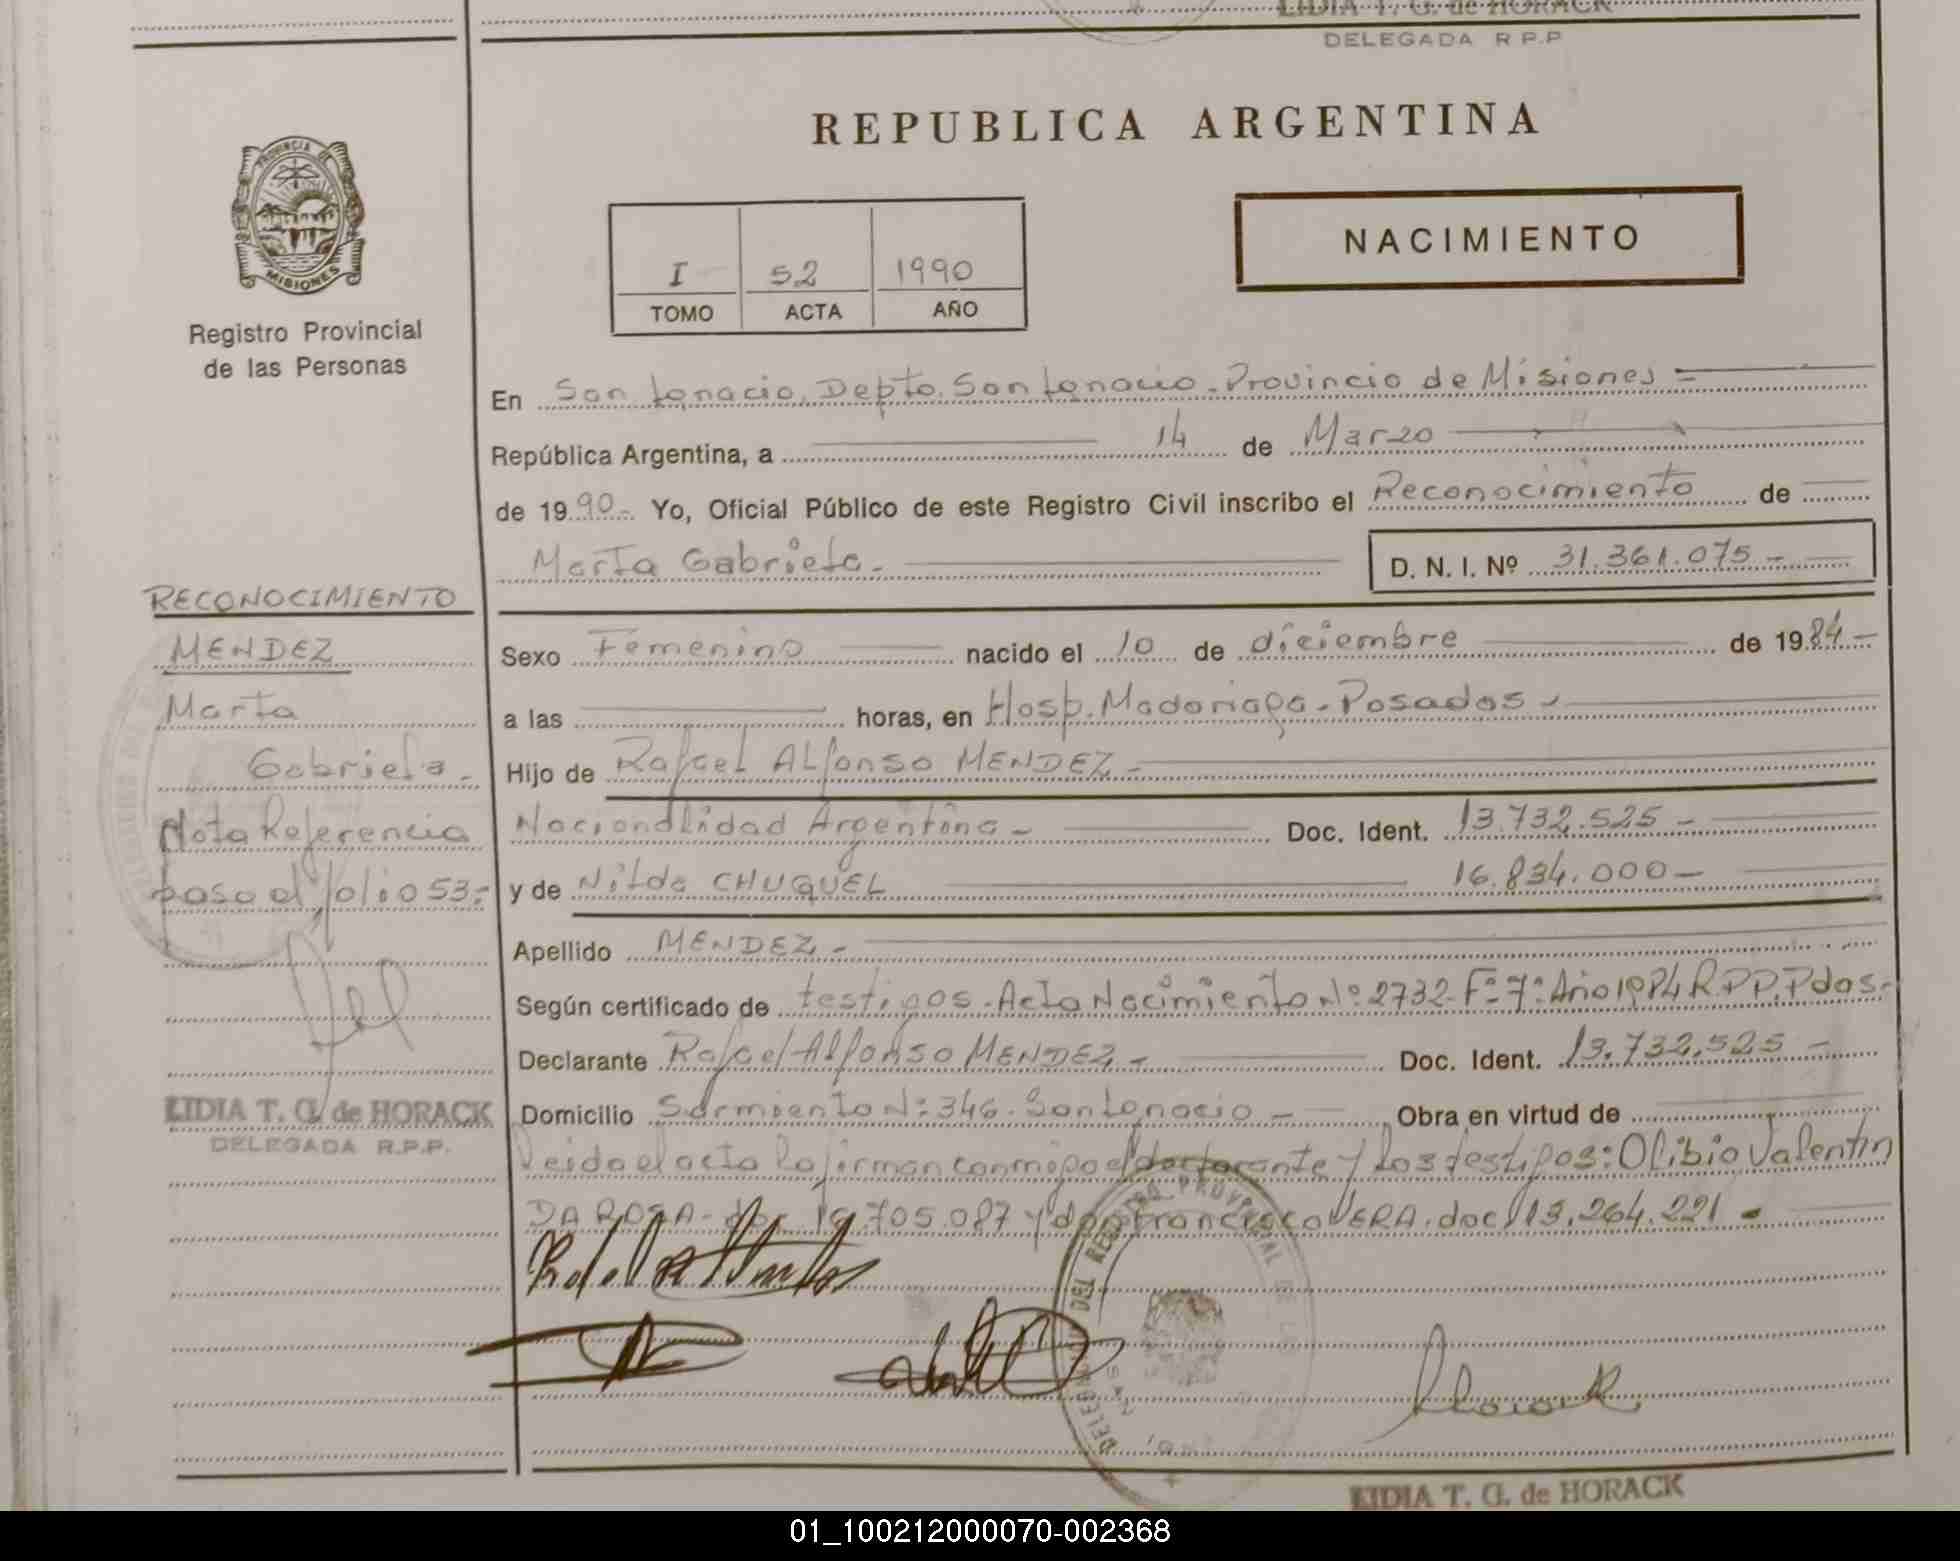 LIDIA T. G. de HORACK
DELEGADA R.P.P.
REPUBLICA ARGENTINA
PROVINCIA DE
MISIONES
Registro Provincial
de las Personas
I 52 1990
TOMO ACTA AÑO
NACIMIENTO
En San Ignacio, Depto. San Ignacio. Provincia de Misiones =
República Argentina, a 14 de Marzo
de 1990- Yo, Oficial Público de este Registro Civil inscribo el Reconocimiento de
Marta Gabriela.
D. N. I. Nº 31.361.075-
RECONOCIMIENTO
MENDEZ
Marta
Gabriela-
Nota Referencia
paso al folio 53.-
LIDIA T. G. de HORACK
DELEGADA R.P.P.
Sexo Femenino nacido el 10 de diciembre de 1984-
a las horas, en Hosp. Madariaga-Posadas-
Hijo de Rafael Alfonso MENDEZ-
Nacionalidad Argentina- Doc. Ident. 13.732.525-
y de Nilda CHUQUEL 16.834.000-
Apellido MENDEZ-
Según certificado de testigos. Acta Nacimiento Nº 2732-Fº 7º Año 1984 R.P.P. Pdas-
Declarante Rafael Alfonso MENDEZ- Doc. Ident. 13.732.525-
Domicilio Sarmiento Nº 346. San Ignacio- Obra en virtud de
Leida el acta la firman conmigo el declarante y los testigos: Olibio Valentin
DA ROSA- 705.087 y don Francisco VERA. doc. 13.264.221-
DEL REGISTRO PROVINCIAL DE
LIDIA T. G. de HORACK
01_100212000070-002368